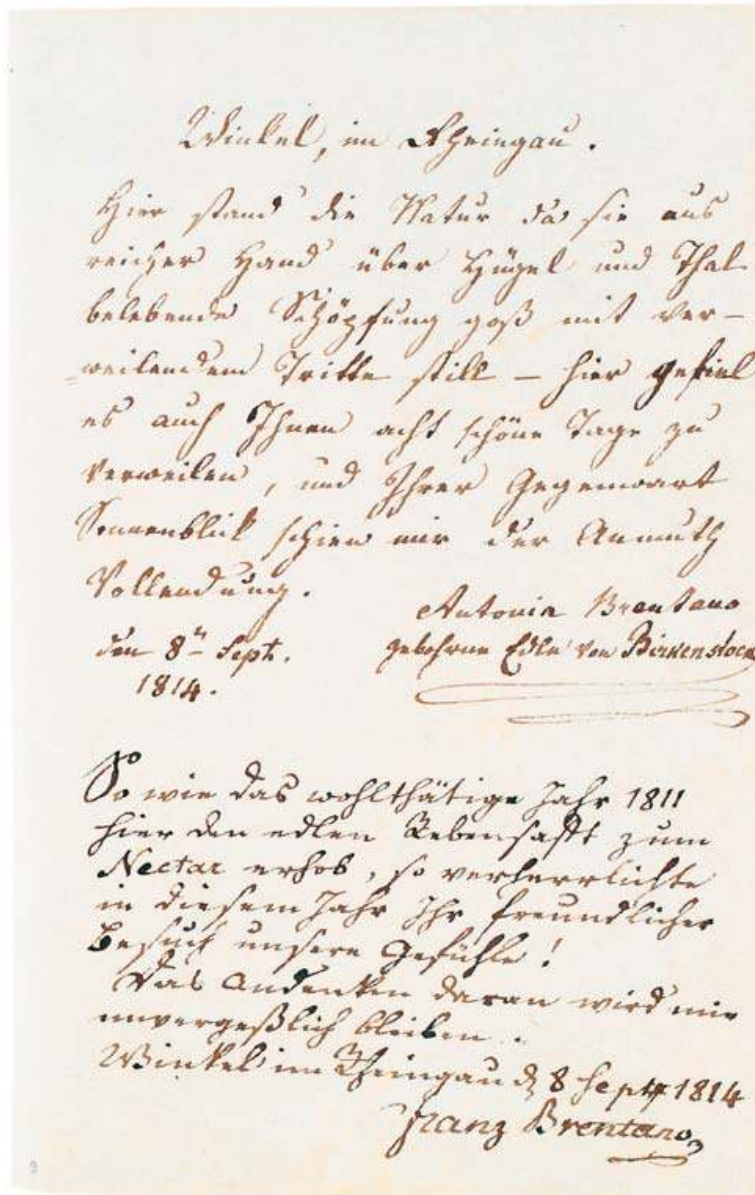 Winkel, im Rheingau.
Hier stand die Natur da sie aus
reicher Hand über Hügel und Thal
belebende Schöpfung goß mit ver-
weilendem Tritte still – hier gefiel
es auch Ihnen acht schöne Tage zu
verweilen, und Ihrer Gegenwart
Sonnenblick schien mir der Anmuth
Vollendung.
Antonia Brentano
den 8n Sept. gebohrne Edle von Birkenstock
1814.
So wie das wohlthätige Jahr 1811
hier den edlen Rebensaft zum
Nectar erhob, so verherrlichte
in diesem Jahr Ihr freundlicher
Besuch unsere Gefühle!
Das Andenken daran wird mir
unvergeßlich bleiben.
Winkel im Rheingau d 8 Sept 1814
Franz Brentano